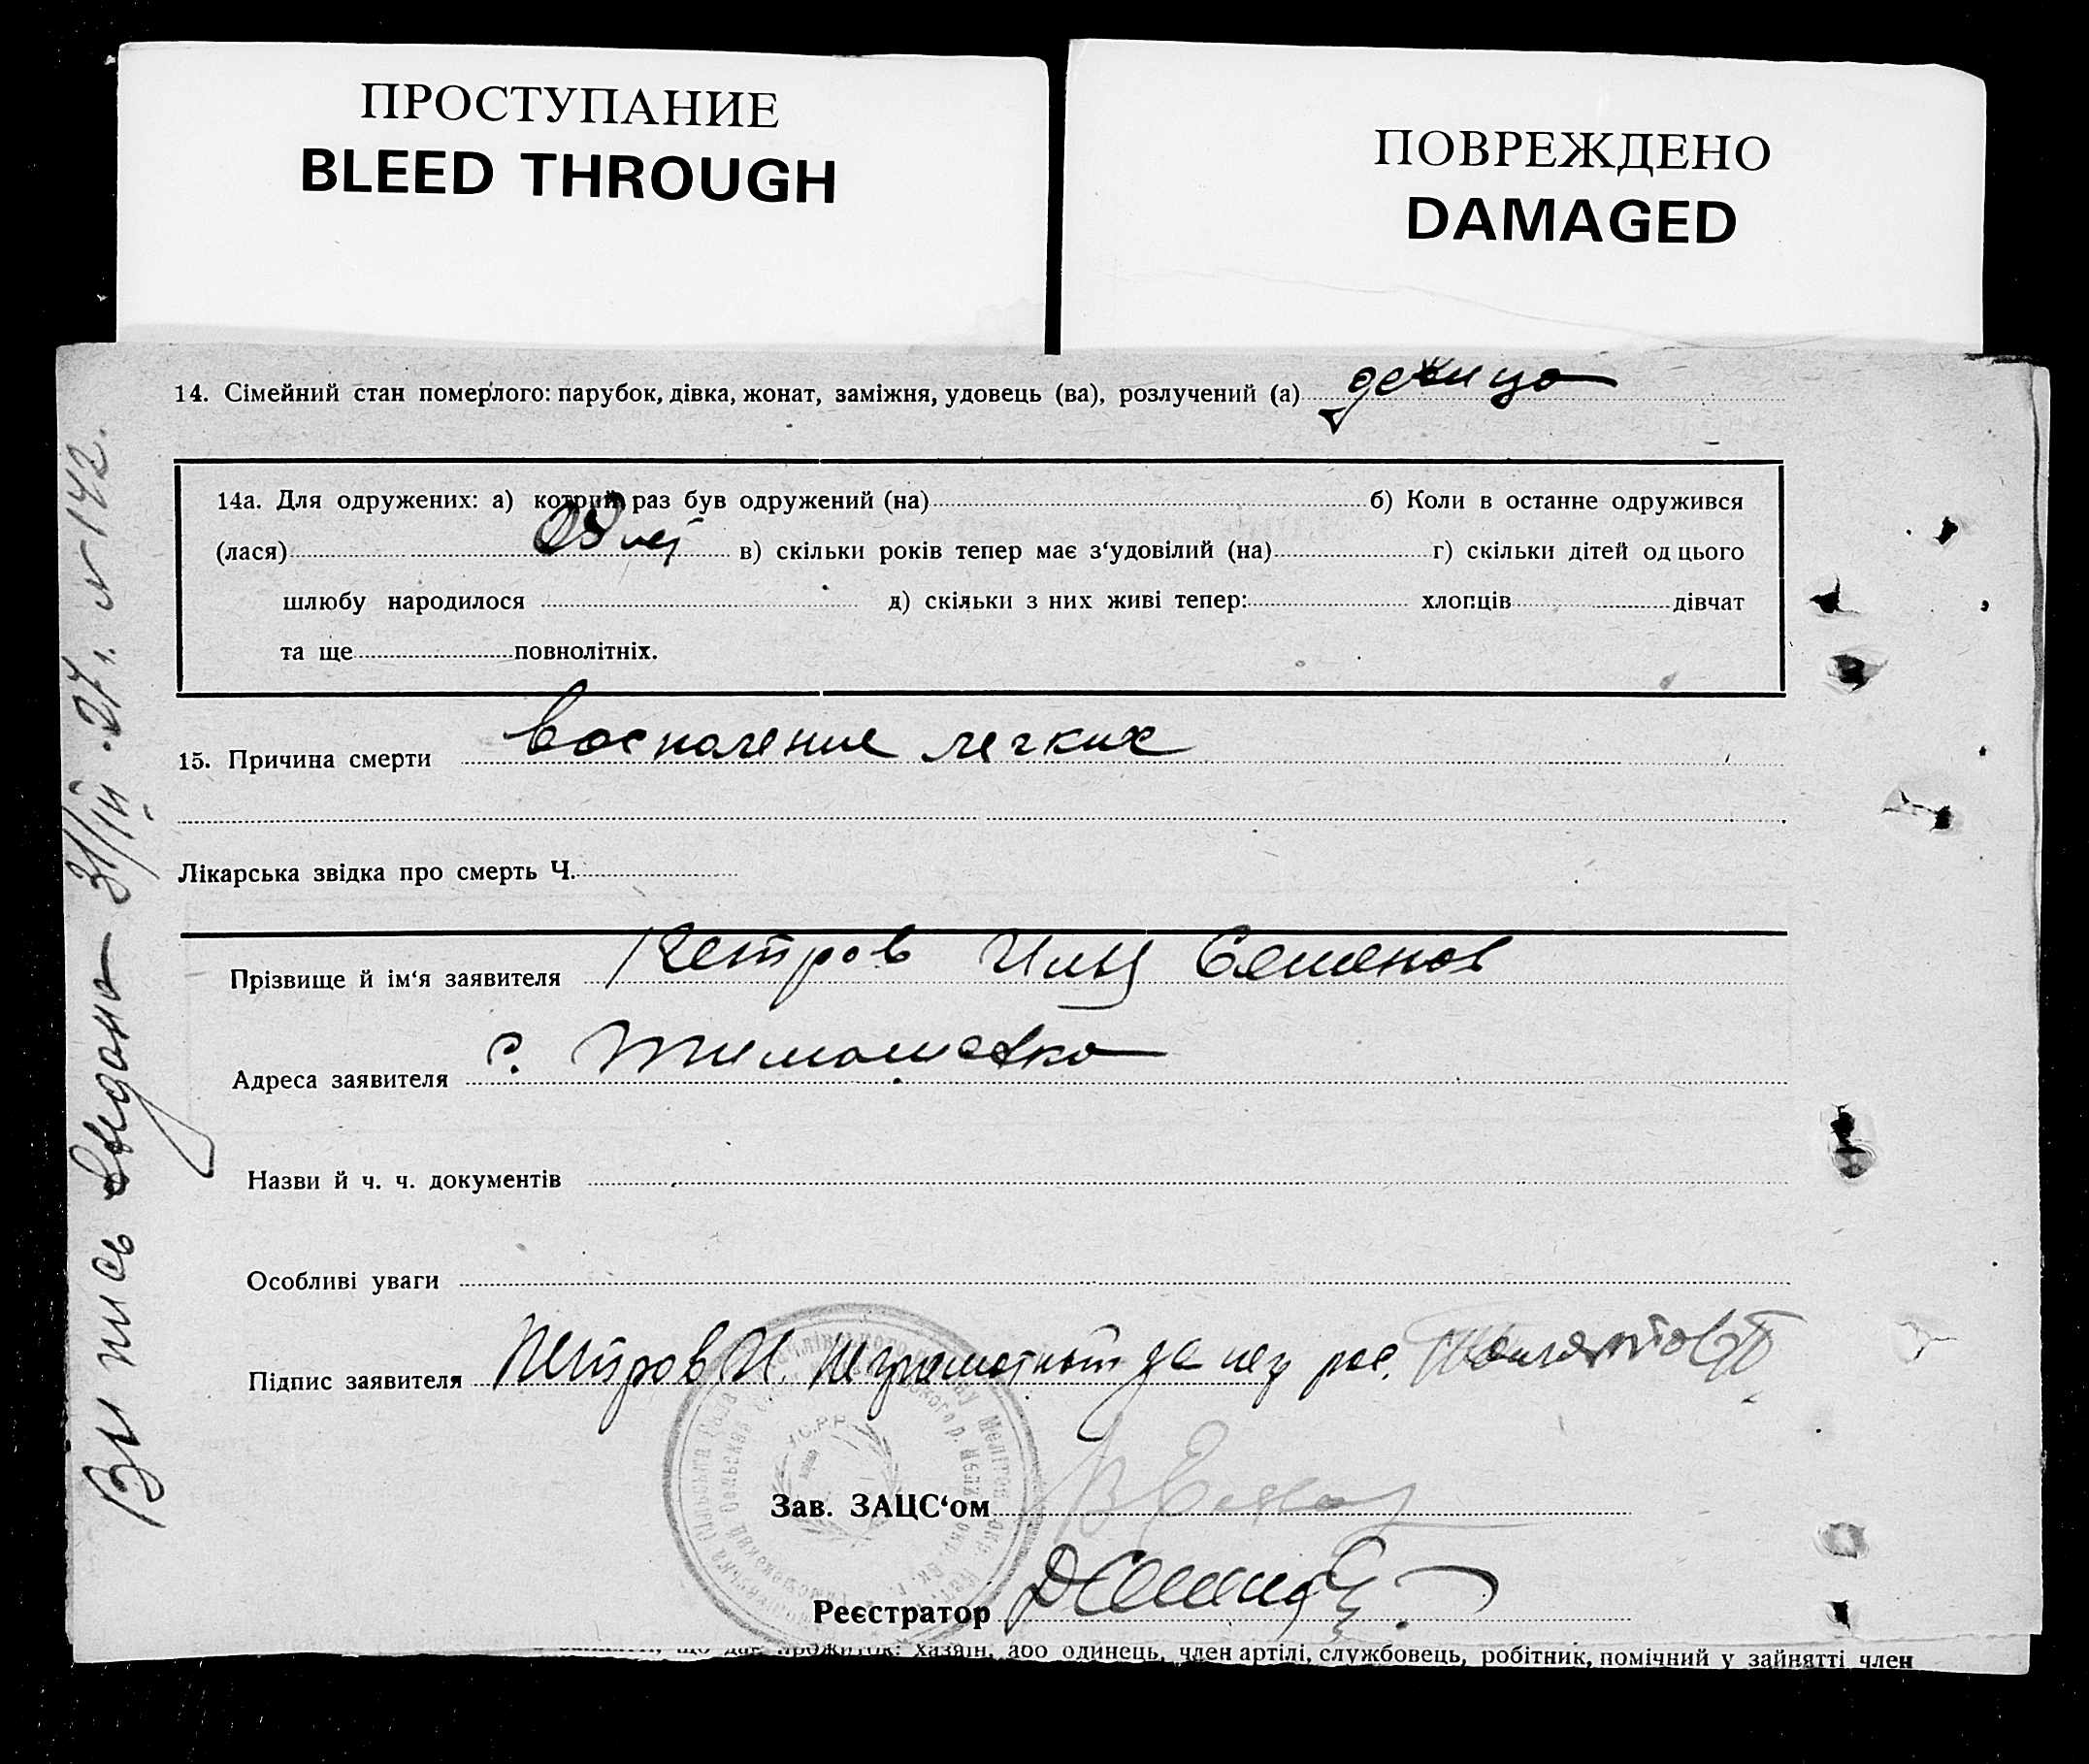 ПРОСТУПАНИЕ
BLEED THROUGH
ПОВРЕЖДЕНО
DAMAGED
14. Сімейний стан померлого: парубок, дівка, жонат, заміжня, удовець (ва), розлучений (а) девица
14а. Для одружених: а) котрий раз був одружений (на) б) Коли в останне одружився
(лася) в) скільки років тепер має з‘удовілий (на) г) скільки дітей од цього
шлюбу народилося д) скільки з них живі тепер: хлопців дівчат
та ще повнолітніх.
15. Причина смерти воспаление легких
Лікарська звідка про смерть Ч.
Прізвище й ім‘я заявителя Петров Илья Семенов
Адреса заявителя с. Тимошевка
Назви й ч. ч. документів
Особливі уваги
Підпис заявителя Петров И. неграмотный за него рас.
Зав. ЗАЦС‘ом
Реєстратор
прожиток: хазяїн, або одинець, член артілі, службовець, робітник, помічний у зайнятті член
Выпись выдана 31/III.27 г. N 142.